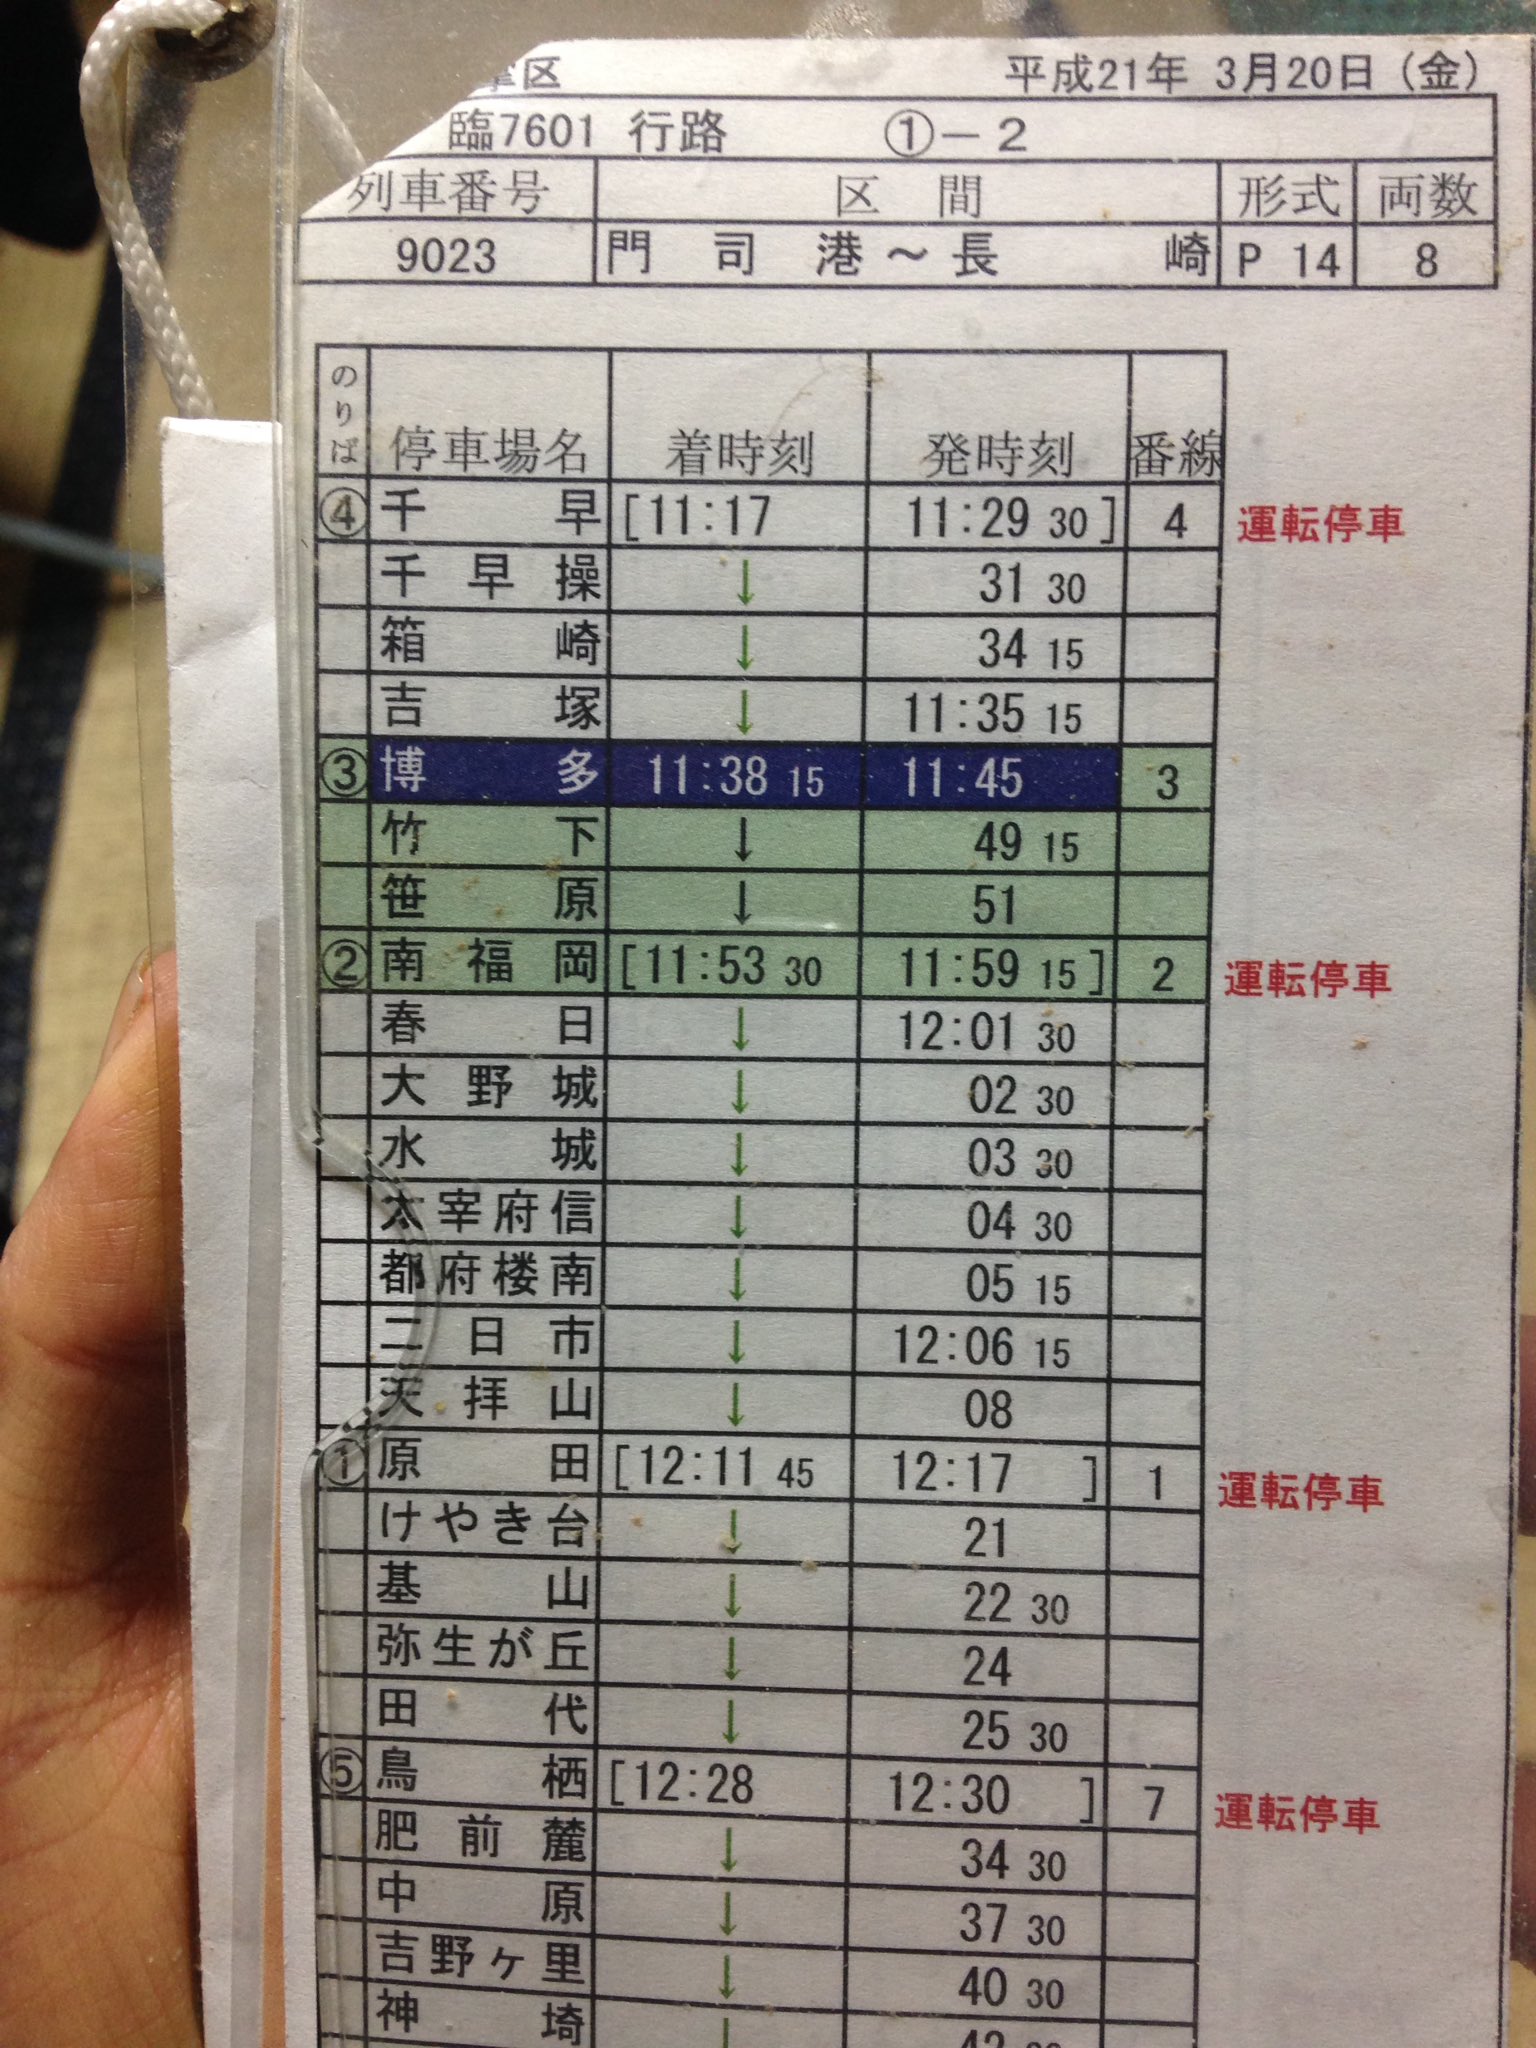 掌区 平成21年 3月20日（金）
臨7601 行路 ①－2
列車番号 区間 形式 両数
9023 門司港～長崎 P 14 8
のりば 停車場名 着時刻 発時刻 番線
④ 千早 [11:17 11:29 30] 4 運転停車
千早操 ↓ 31 30
箱崎 ↓ 34 15
吉塚 ↓ 11:35 15
③ 博多 11:38 15 11:45 3
竹下 ↓ 49 15
笹原 ↓ 51
② 南福岡 [11:53 30 11:59 15] 2 運転停車
春日 ↓ 12:01 30
大野城 ↓ 02 30
水城 ↓ 03 30
太宰府信 ↓ 04 30
都府楼南 ↓ 05 15
二日市 ↓ 12:06 15
天拝山 ↓ 08
① 原田 [12:11 45 12:17 ] 1 運転停車
けやき台 ↓ 21
基山 ↓ 22 30
弥生が丘 ↓ 24
田代 ↓ 25 30
⑤ 鳥栖 [12:28 12:30 ] 7 運転停車
肥前麓 ↓ 34 30
中原 ↓ 37 30
吉野ヶ里 ↓ 40 30
神埼 ↓